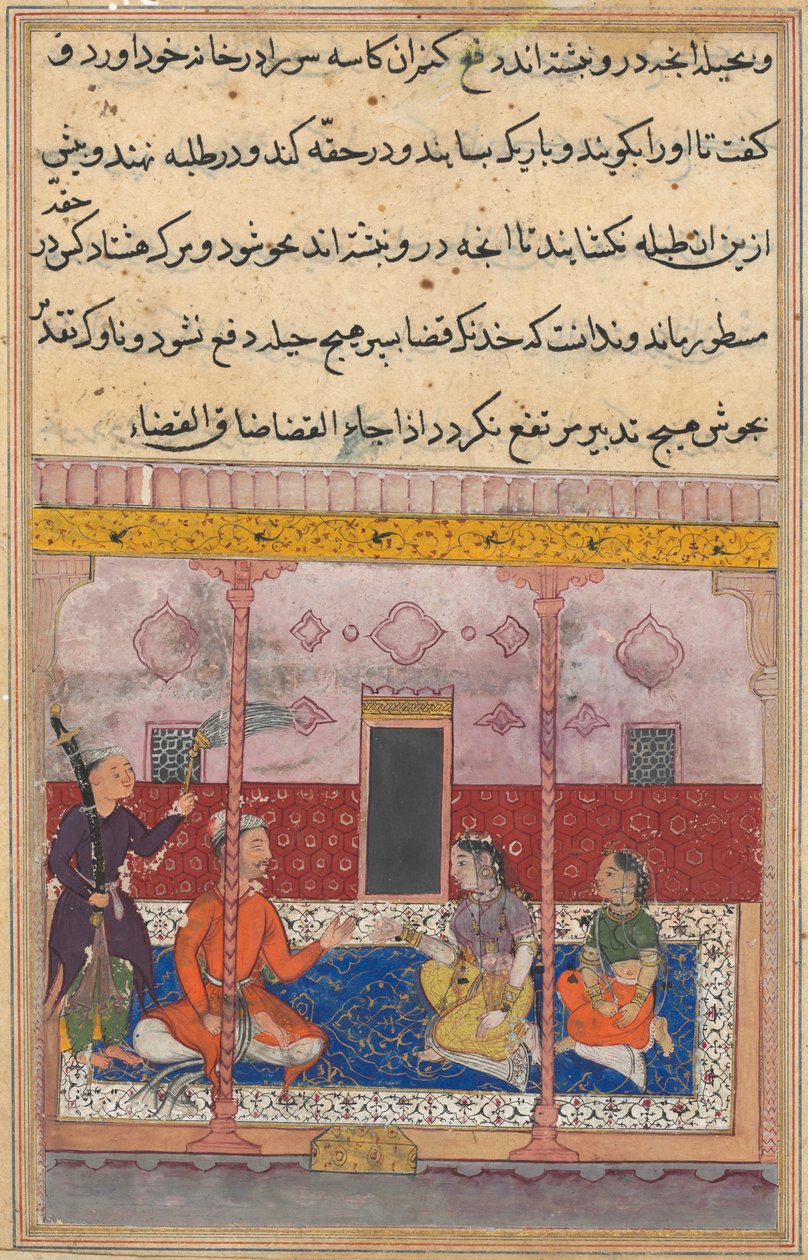 و بحیله انجه درو نبشته اند دفع کنم ان کاسه سر را در خانه خود اورد و
کفت تا اورا بکوبند و باریک بسایند و در حقّه کند و در طبله نهند و بیش
از ین ان طبله نکشایند تا انجه درو نبشته اند محو شود و مرک هشتاد کس در حقّه
مسطور ماند و ندانست که خدنک قضا بسپر هیج حیله دفع نشود و ناوک تقدیر
بجوش هیج تدبیر مرتفع نکردد اذا جاء القضا ضاق الفضاء